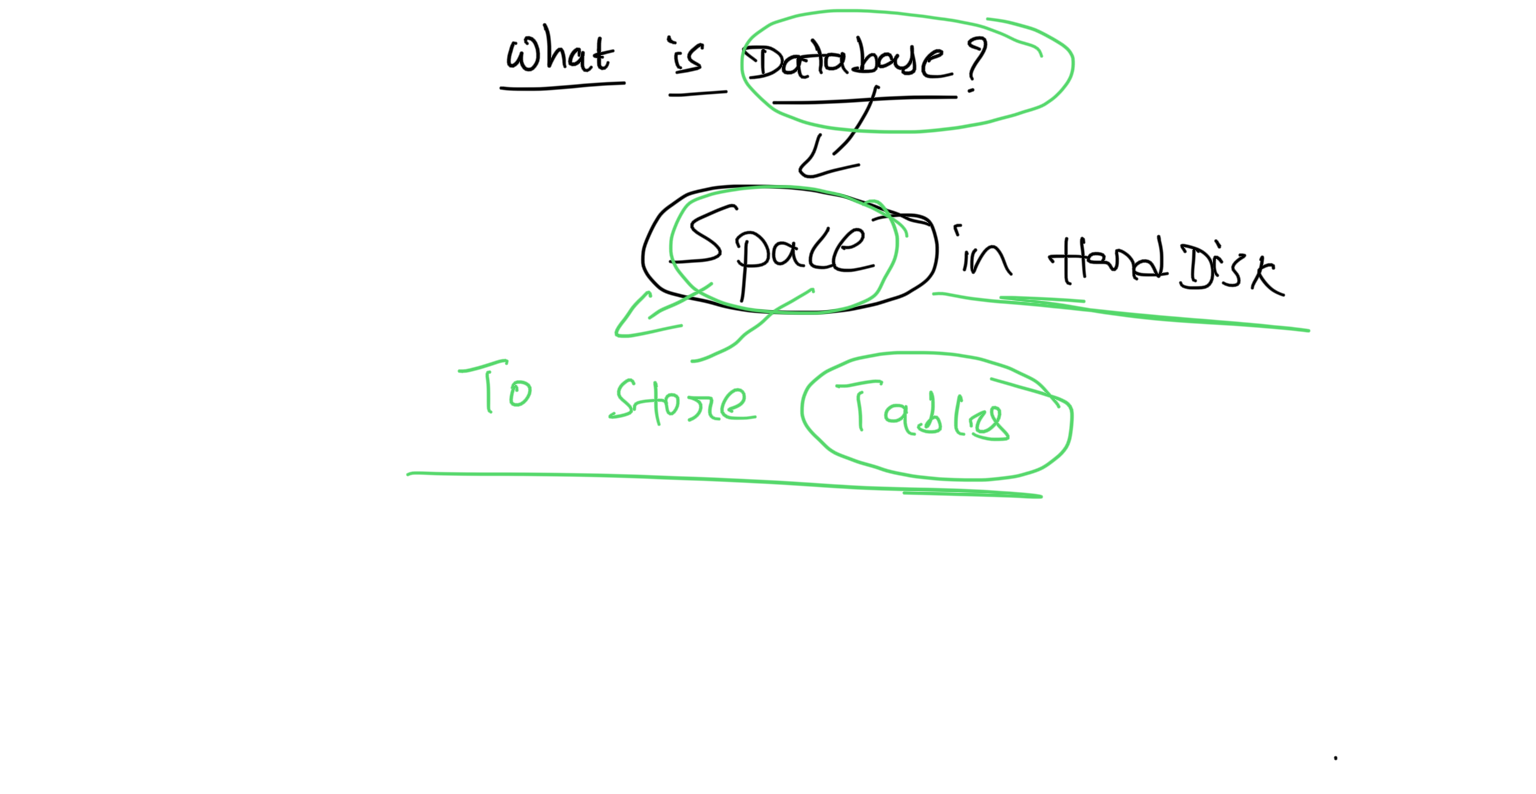 What is Database?
Space in Hard Disk
To store Tables